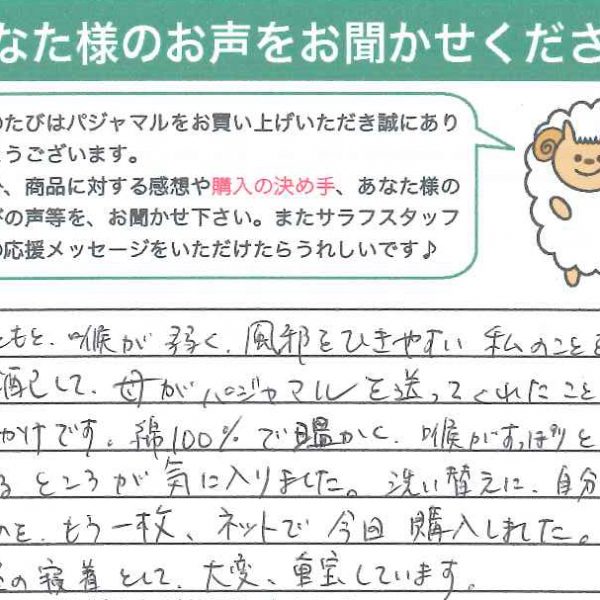 なた様のお声をお聞かせくださ
のたびはパジャマルをお買い上げいただき誠にあり
とうございます。
、商品に対する感想や購入の決め手、あなた様の
びの声等を、お聞かせ下さい。またサラフスタッフ
の応援メッセージをいただけたらうれしいです♪
ともと、喉が弱く、風邪をひきやすい私のことを
配して、母がパジャマルを送ってくれたこと
かけです。綿100%で温かく、喉がすっぽりと
るところが気に入りました。洗い替えに、自分
のを、もう一枚、ネットで今回購入しました。
の寝着として、大変、重宝しています。